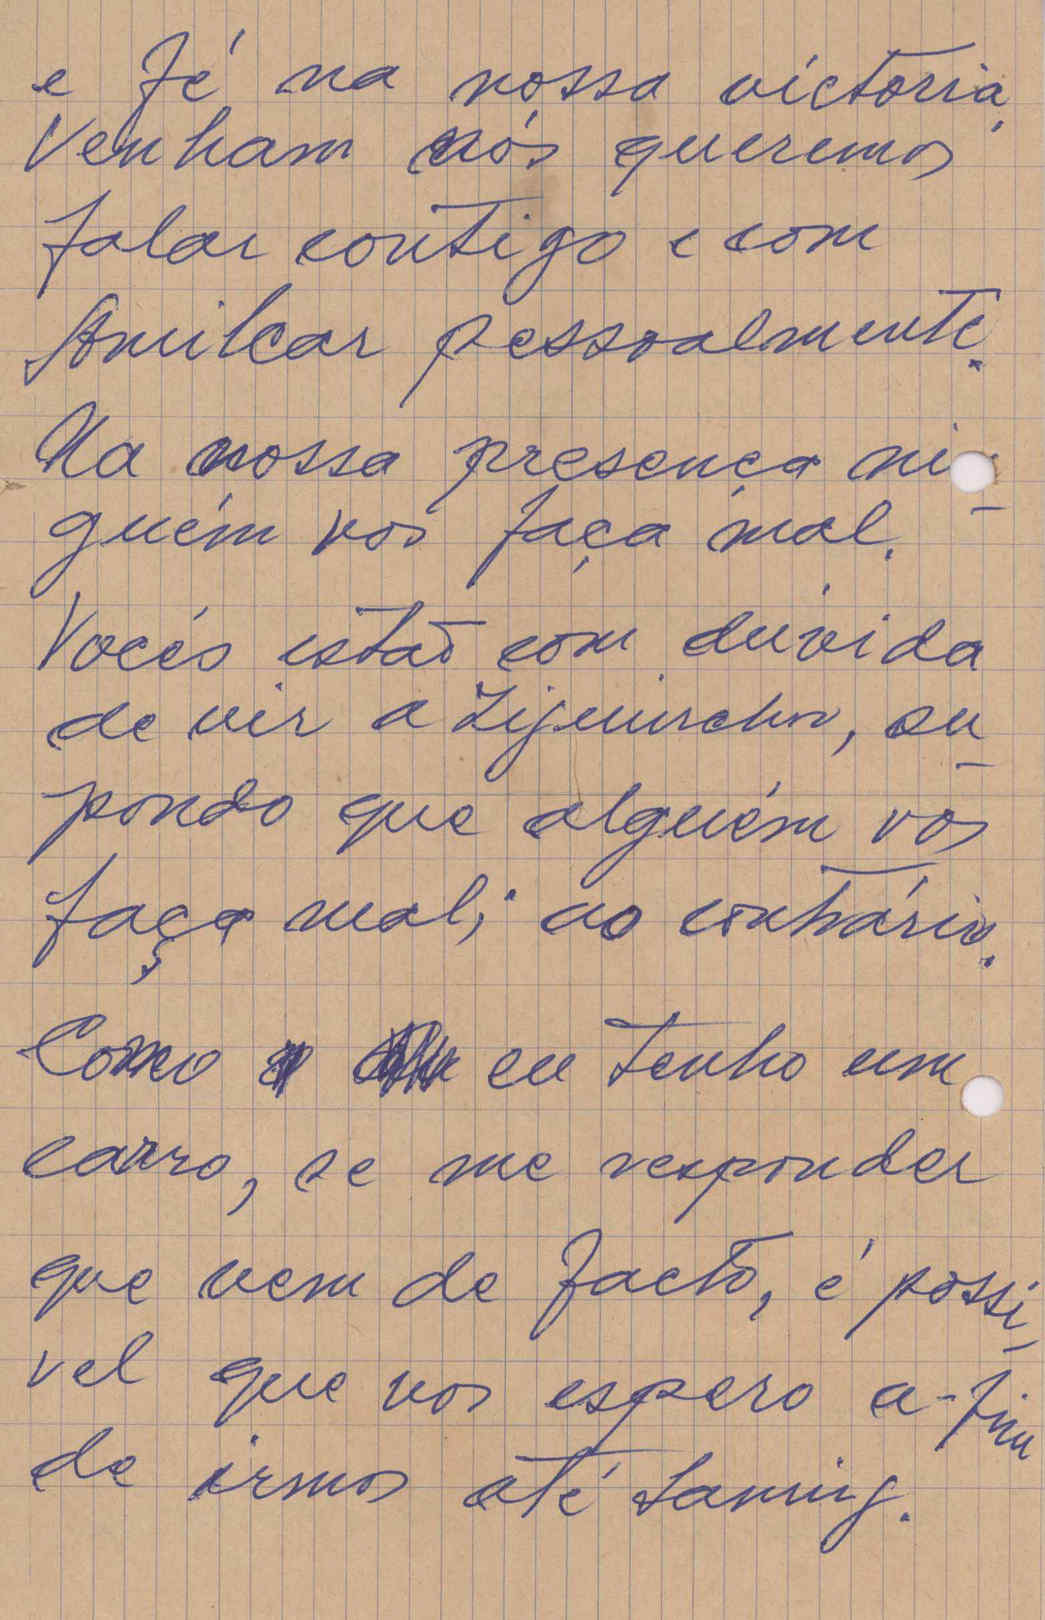 e fé na nossa victoria.
Venham nós queremos
falar contigo e com
Amilcar pessoalmente.
Na nossa presença nin-
guém vos faça mal.
Vocês estão com dúvida
de vir a Ziguinchor, su-
pondo que alguém vos
faça mal; ao contrário.
Como eu tenho um
carro, se me responder
que vem de facto, é possi-
vel que vos espero a-fim
de irmos até Saming.